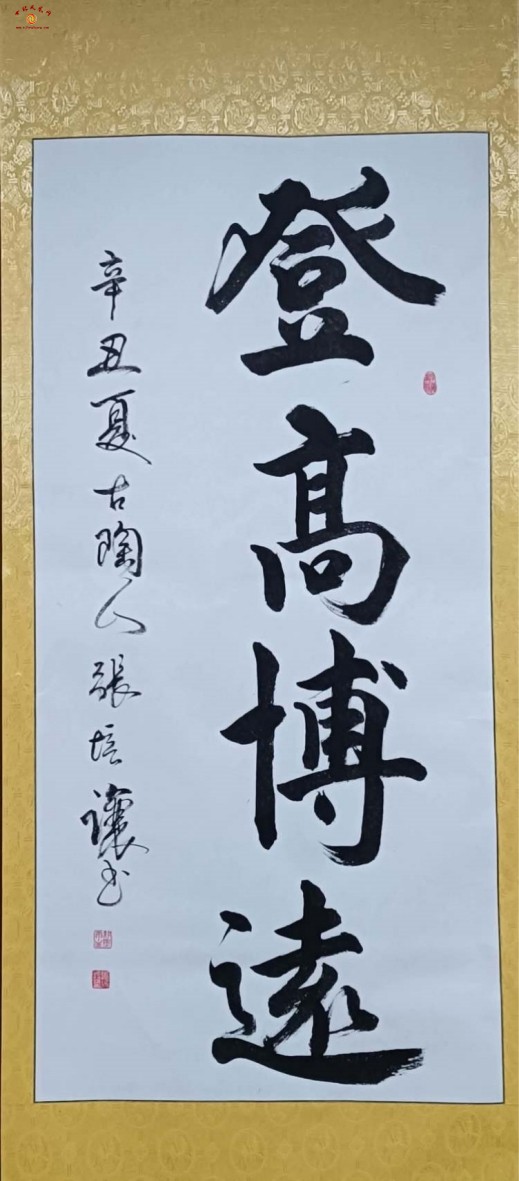 登高博遠
辛丑夏古陶人張培讓書